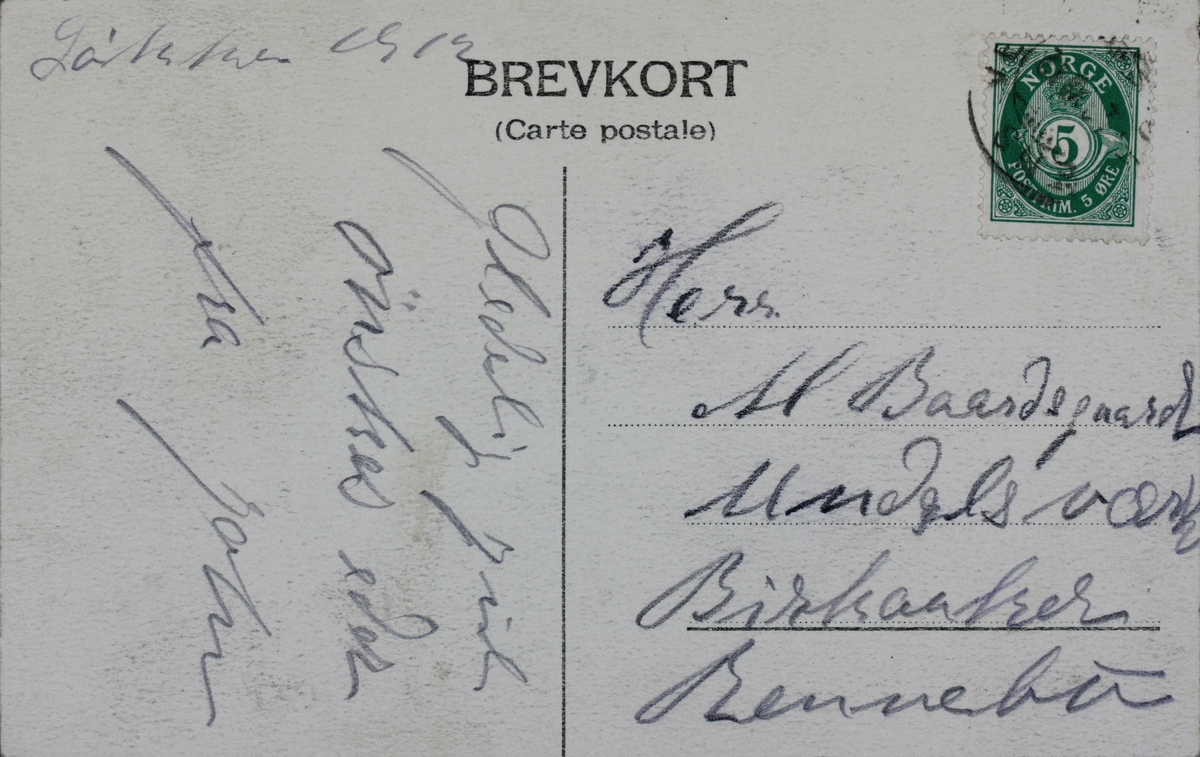 1912
BREVKORT
(Carte postale)
NORGE
5
POSTFRIM. 5 ØRE
Gledelig jul
önskes eder
fra
Herr
Al Baardsgaard
Undals værk
Birkaaker
Rennebu